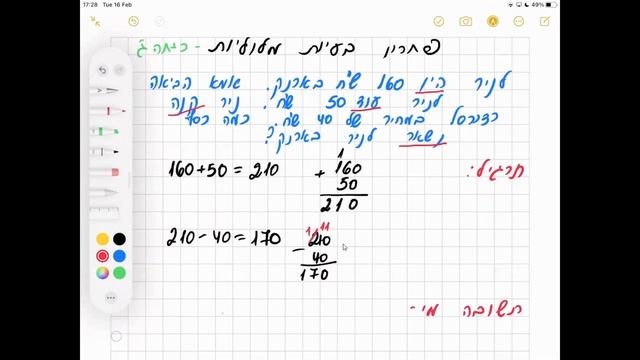 17:28 Tue 16 Feb
49%
פתרון בעיות מילוליות - כיתה ג'
לניר היו 160 ש"ח בארנק. אמא הביאה
לניר עוד 50 ש"ח. ניר קנה
כדורסל במחיר של 40 ש"ח. כמה כסף
נשאר לניר בארנק?
תרגיל:
160+50=210
1
+ 160
50
210
210-40=170
1 11
- 210
40
170
תשובה מי-